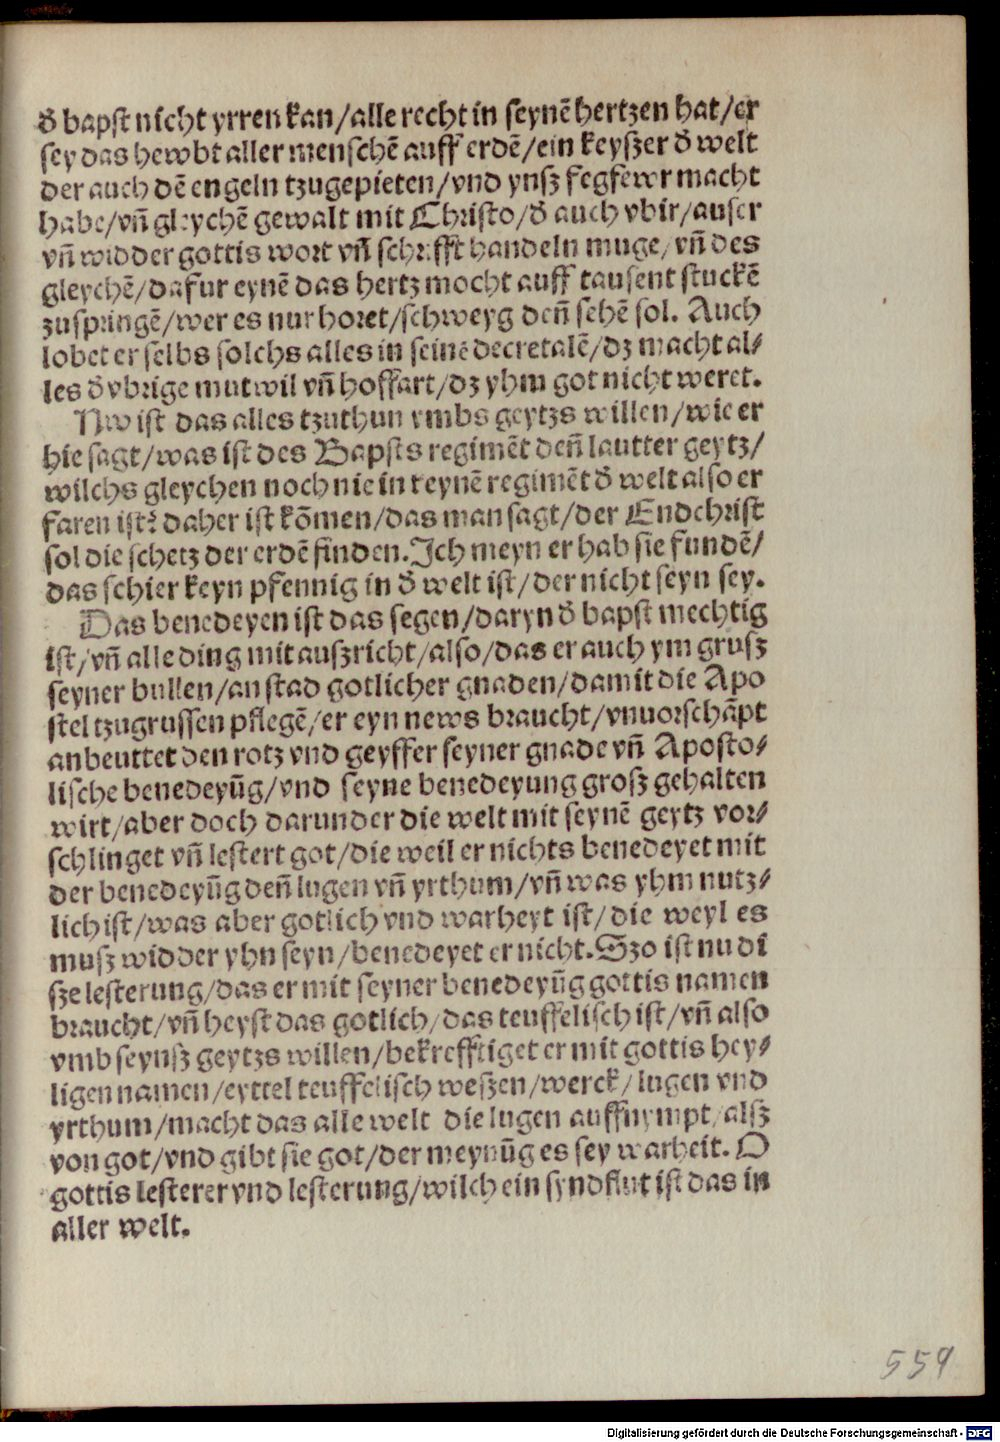 d᷑ bapst nicht yrren kan/alle recht in seynē hertzen hat/er
sey das hewbt aller menschē auff erdē/ein keyszer d᷑ welt
der auch dē engeln tzugepieten/vnd ynsz fegfewr macht
habe/vn̄ gleychē gewalt mit Christo/d᷑ auch vbir/auser
vn̄ widder gottis wort vn̄ schrifft handeln muge/vn̄ des
gleychē/dafur eynē das hertz mocht auff tausent stuckē
zuspringē/wer es nur horet/schweyg den̄ sehē sol. Auch
lobet er selbs solchs alles in seinē decretalē/dz macht al⸗
les d᷑ vbrige mutwil vn̄ hoffart/dz yhm got nicht weret.
Nw ist das alles tzuthun vmbs geytzs willen/wie er
hie sagt/was ist des Bapsts regimēt den̄ lautter geytz/
wilchs gleychen noch nie in keynē regimēt d᷑ welt also er
faren ist? daher ist kōmen/das man sagt/der Endchrist
sol die schetz der erdē finden. Ich meyn er hab sie fundē/
das schier keyn pfennig in d᷑ welt ist/der nicht seyn sey.
Das benedeyen ist das segen/daryn d᷑ bapst mechtig
ist/vn̄ alle ding mit auszricht/also/das er auch ym grusz
seyner bullen/an stad gotlicher gnaden/damit die Apo
stel tzugrussen pflegē/er eyn news braucht/vnuorschāpt
anbeuttet den rotz vnd geyffer seyner gnade vn̄ Aposto⸗
lische benedeyūg/vnd seyne benedeyung grosz gehalten
wirt/aber doch darunder die welt mit seynē geytz vor⸗
schlinget vn̄ lestert got/die weil er nichts benedeyet mit
der benedeyūg den̄ lugen vn̄ yrthum/vn̄ was yhm nutz⸗
lich ist/was aber gotlich vnd warheyt ist/die weyl es
musz widder yhn seyn/benedeyet er nicht. Szo ist nu di
sze lesterung/das er mit seyner benedeyūg gottis namen
braucht/vn̄ heyst das gotlich/das teuffelisch ist/vn̄ also
vmb seynsz geytzs willen/bekrefftiget er mit gottis hey⸗
ligen namen/eyttel teuffelisch weszen/werck/lugen vnd
yrthum/macht das alle welt die lugen auffnympt/alsz
von got/vnd gibt sie got/der meynūg es sey warheit. O
gottis lesterer vnd lesterung/wilch ein syndflut ist das in
aller welt.
559
Digitalisierung gefördert durch die Deutsche Forschungsgemeinschaft - DFG